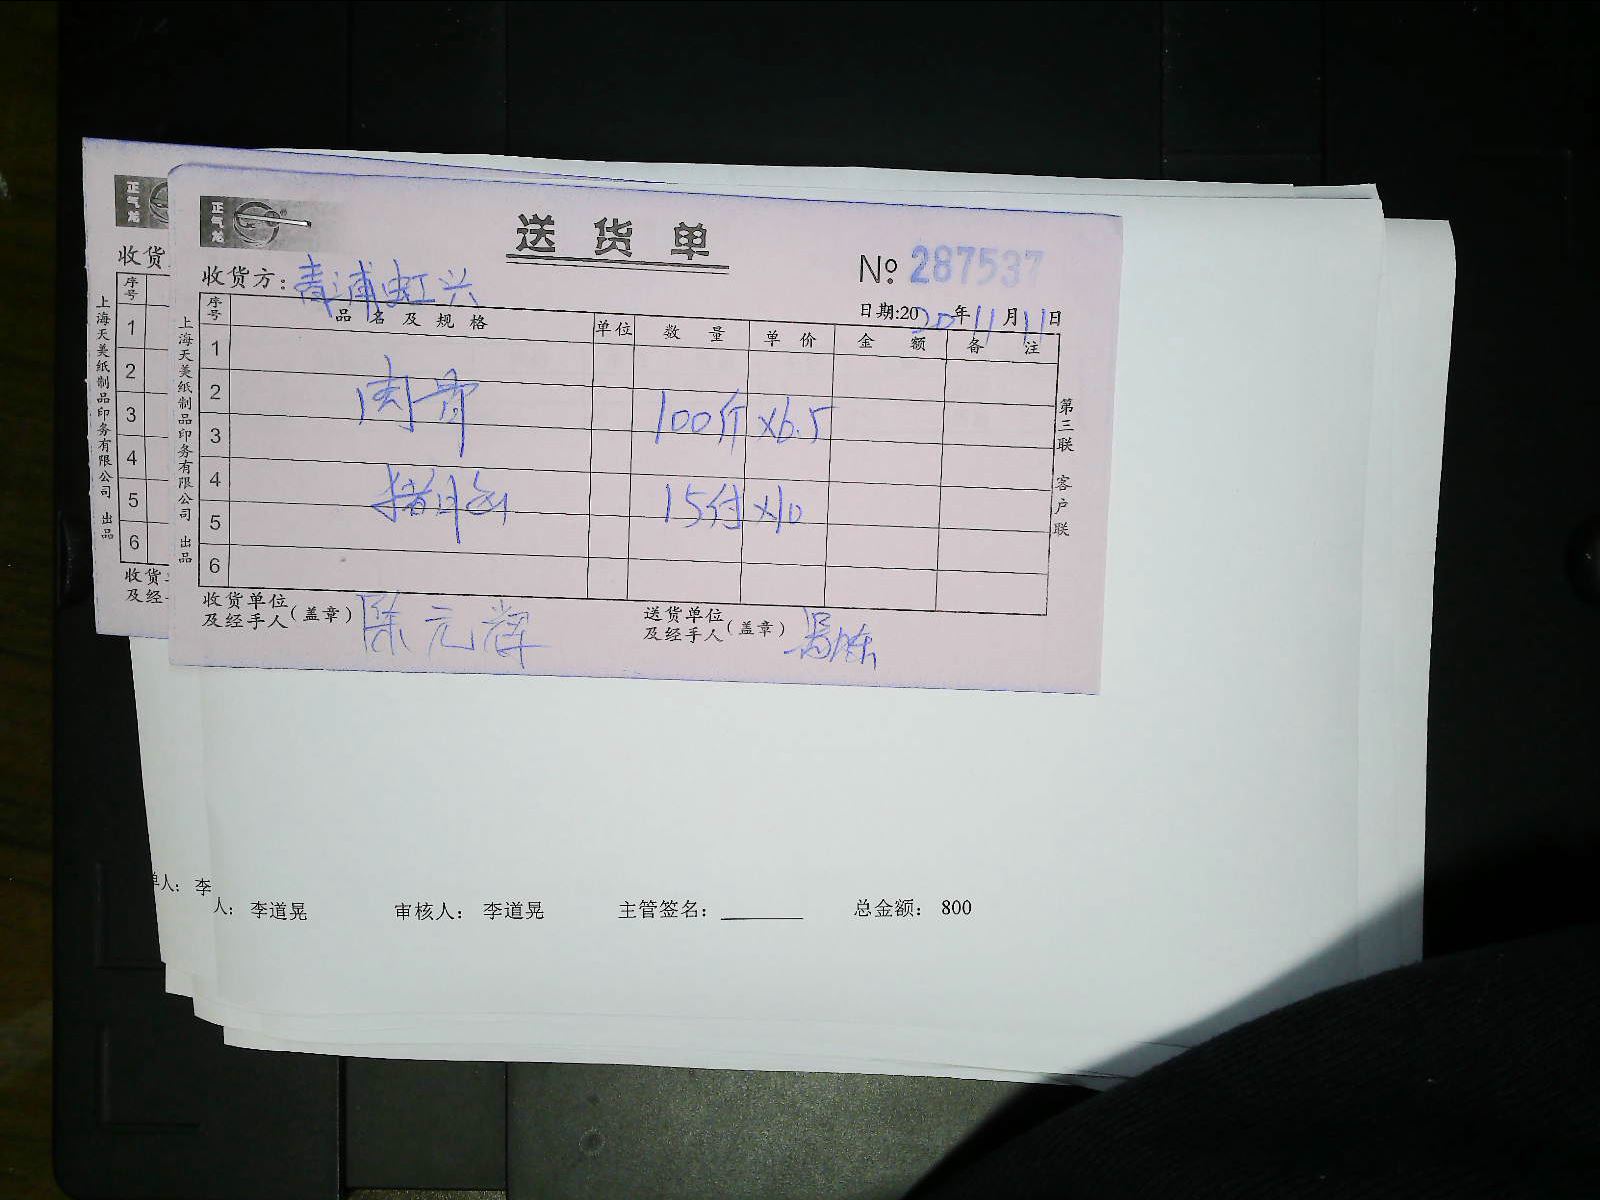 正气龙
送货单
收货方：青浦虹兴
№ 287537
日期：2020年11月11日
序号 品名及规格 单位 数量 单价 金额 备注
1
2 肉骨 100斤 ×6.5
3
4 猪 15付 ×10
5
6
收货单位及经手人（盖章） 陈元辉
送货单位及经手人（盖章）
第三联 客户联
上海天美纸制品印务有限公司 出品
正气龙
收货
序号
1
2
3
4
5
6
收货
及经
上海天美纸制品印务有限公司 出品
单人： 李
人： 李道晃 审核人： 李道晃 主管签名： 总金额： 800